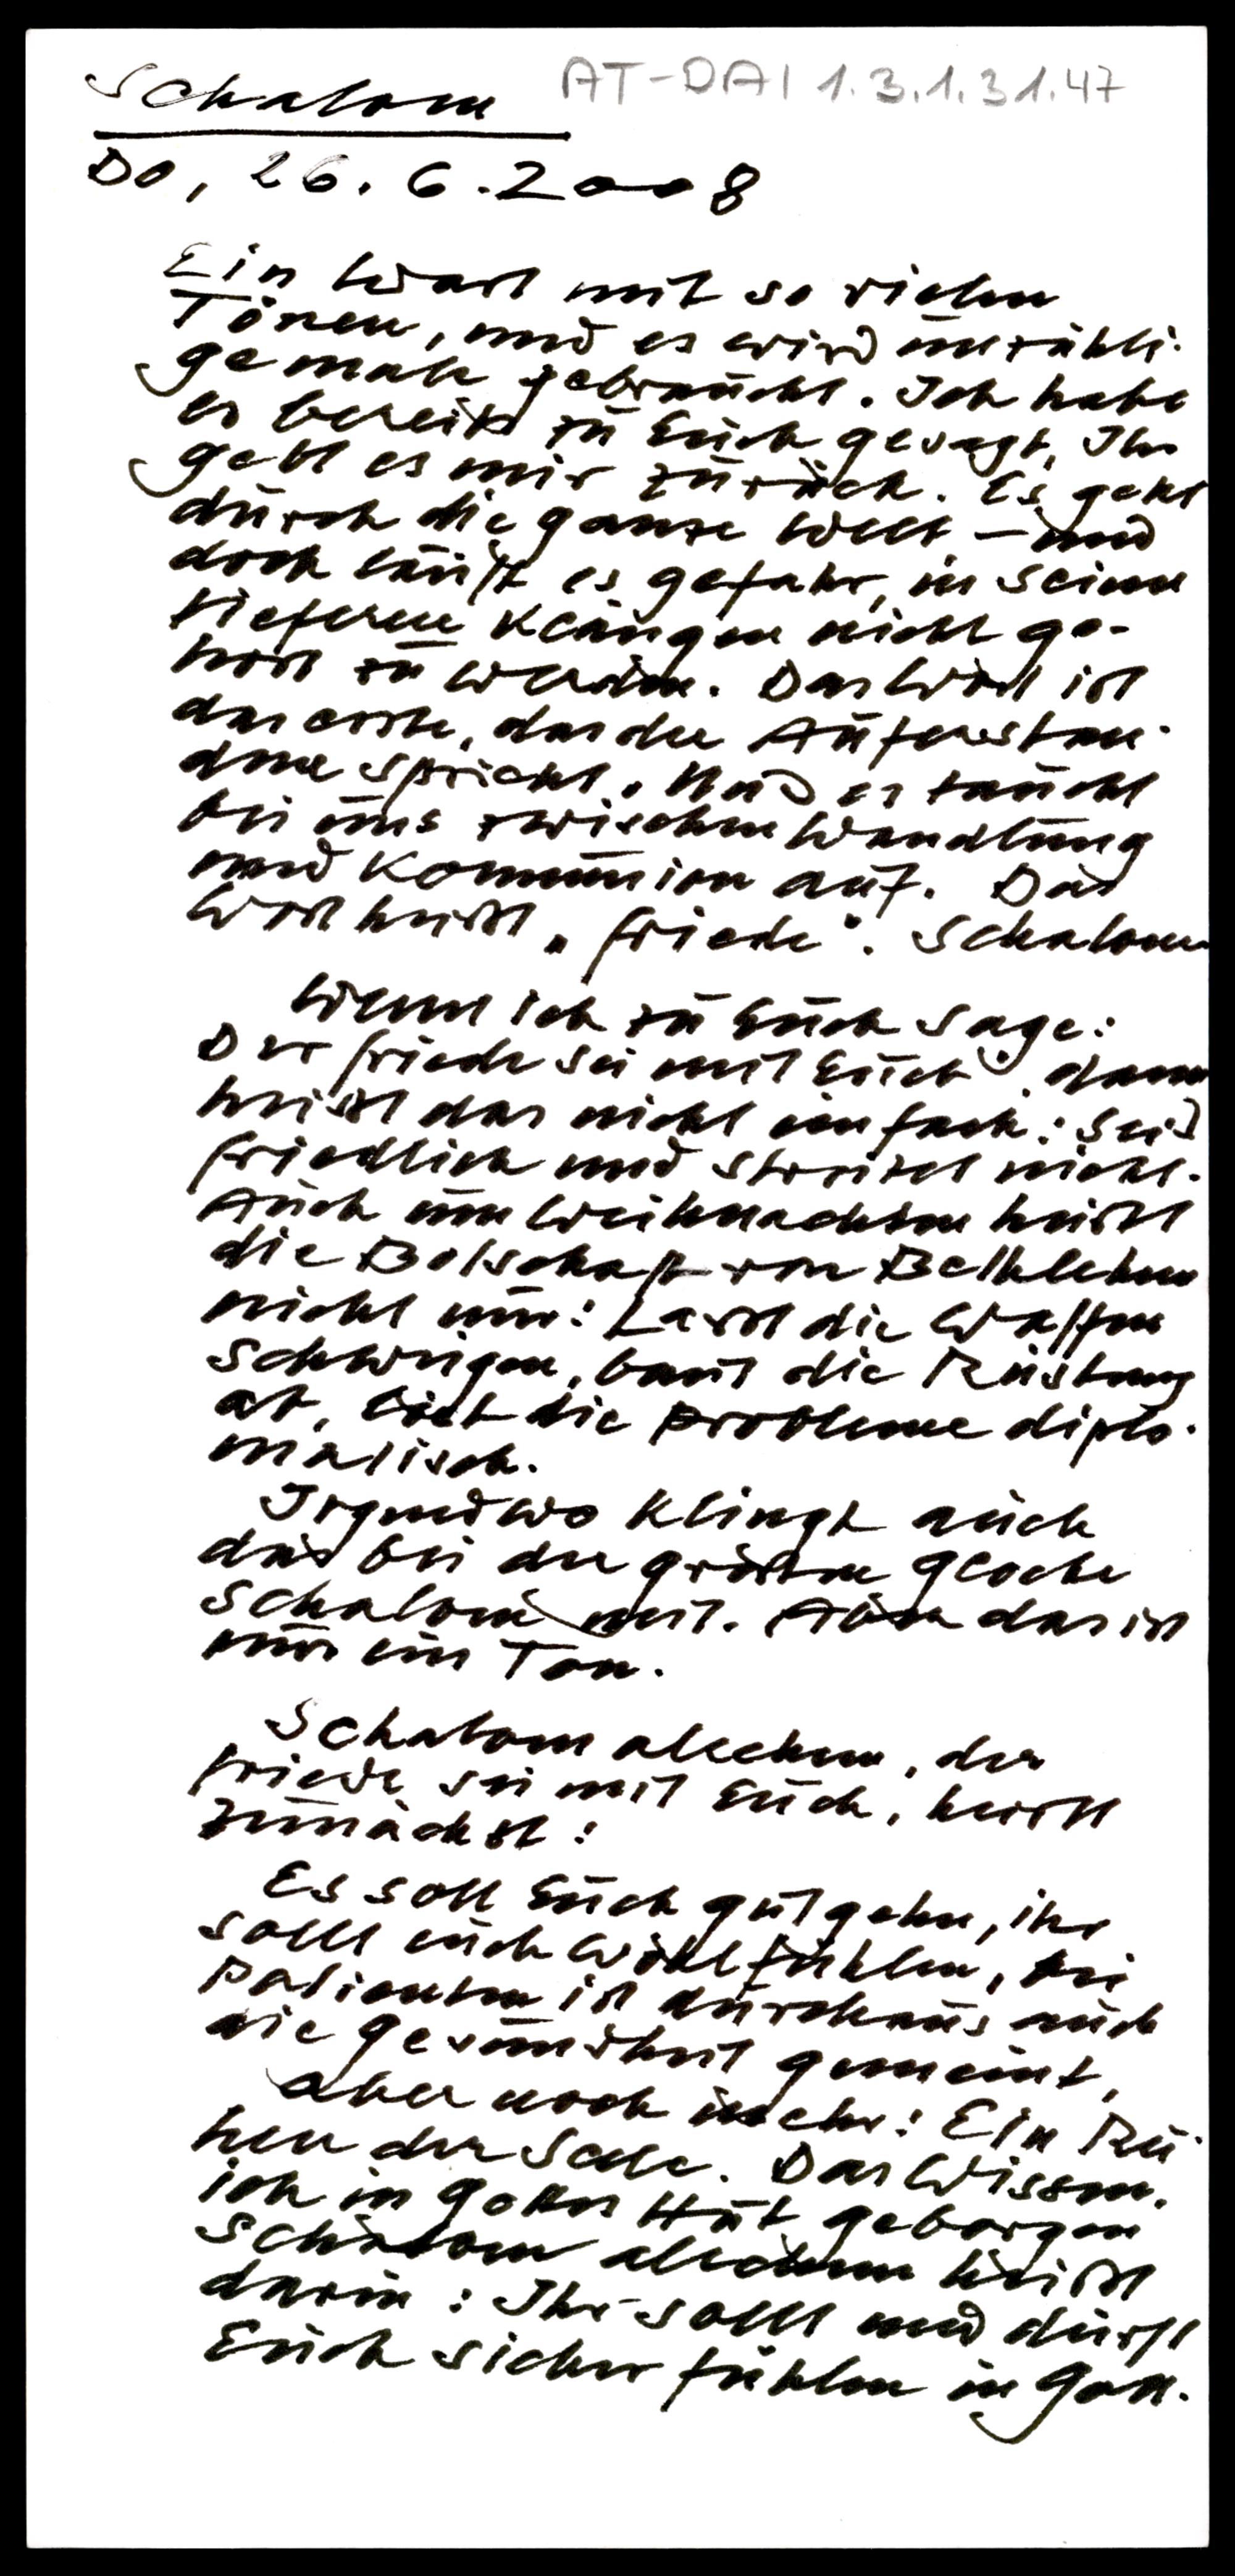 Schalom AT-DAI 1.3.1.31.47
Do, 26.6.2008
Ein Wort mit so vielen
Tönen, und es wird unzähli-
gemale gebraucht. Ich habe
es bereits zu Euch gesagt, Ihr
gebt es mir zurück. Es geht
durch die ganze Welt, – und
doch läuft es Gefahr, in seinen
tieferen Klängen nicht ge-
hört zu werden. Das Wort ist
das erste, das der Auferstan-
dene spricht. Und es taucht
bei uns zwischen Wandlung
und Kommunion auf. Das
Wort heißt „Friede“. Schalom
Wenn ich zu Euch sage:
Der Friede sei mit Euch, dann
heißt das nicht einfach: Seid
friedlich und streitet nicht.
Auch um Weihnachten heißt
die Botschaft von Bethlehem
nicht nur: Lasst die Waffen
schweigen, baut die Rüstung
ab, löst die Probleme diplo-
matisch.
Irgendwo klingt auch
das bei der großen Glocke
Schalom mit. Aber das ist
nur ein Ton.
Schalom alechem, der
Friede sei mit Euch, heisst
zunächst:
Es soll Euch gut gehen, ihr
sollt euch wohl fühlen, bei
Patienten ist durchaus auch
die Gesundheit gemeint,
aber noch mehr: Ein Ru-
hen der Seele. Das Wissen,
ich in Gottes Hut geborgen
Schalom alechem heißt
darin: Ihr sollt und dürft
Euch sicher fühlen in Gott.